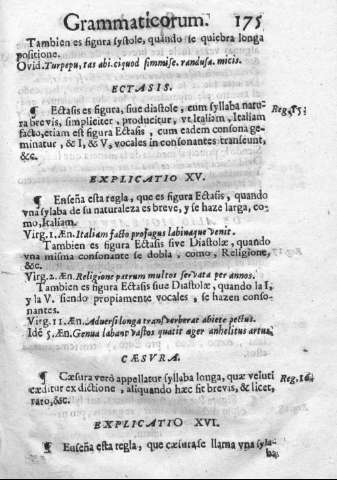 Grammaticorum. 175
Tambien es figura systole, quando se quiebra longa
positione.
Ovid. Turpepu, tas abi. ciquod simmise. randusa. micis.
ECTASIS.
¶ Ectasis es figura, siue diastole, cum syllaba natu-
ra brevis, simpliciter, producitur, vt Italiam, Italiam
facto, etiam est figura Ectasis, cum eadem consona ge-
minatur, & I, & V, vocales in consonantes transeunt,
&c.
Reg. 15.
EXPLICATIO XV.
¶ Enseña esta regla, que es figura Ectasis, quando
vna sylaba de su naturaleza es breve, y se haze larga, co-
mo, Italiam.
Virg. 1. Æn. Italiam facto profugus labinaque venit.
Tambien es figura Ectasis sive Diastolæ, quando
vna misma consonante se dobla, como, Religione,
&c.
Virg. 2. Æn. Religione patrum multos servata per annos.
Tambien es figura Ectasis siue Diastolæ, quando la I,
y la V. siendo propiamente vocales, se hazen conso-
nantes.
Virg. 11. Æn. Adversi longa transverberat abiete pectus.
Idē 5. Æn. Genua labant vastos quatit ager anhelitus artus.
CÆSVRA.
¶ Cæsura verò appellatur syllaba longa, quæ veluti
cæditur ex dictione, aliquando hæc sit brevis, & licet,
raro, &c.
Reg. 16.
EXPLICATIO XVI.
¶ Enseña esta regla, que cæsura se llama vna syla-
ba,